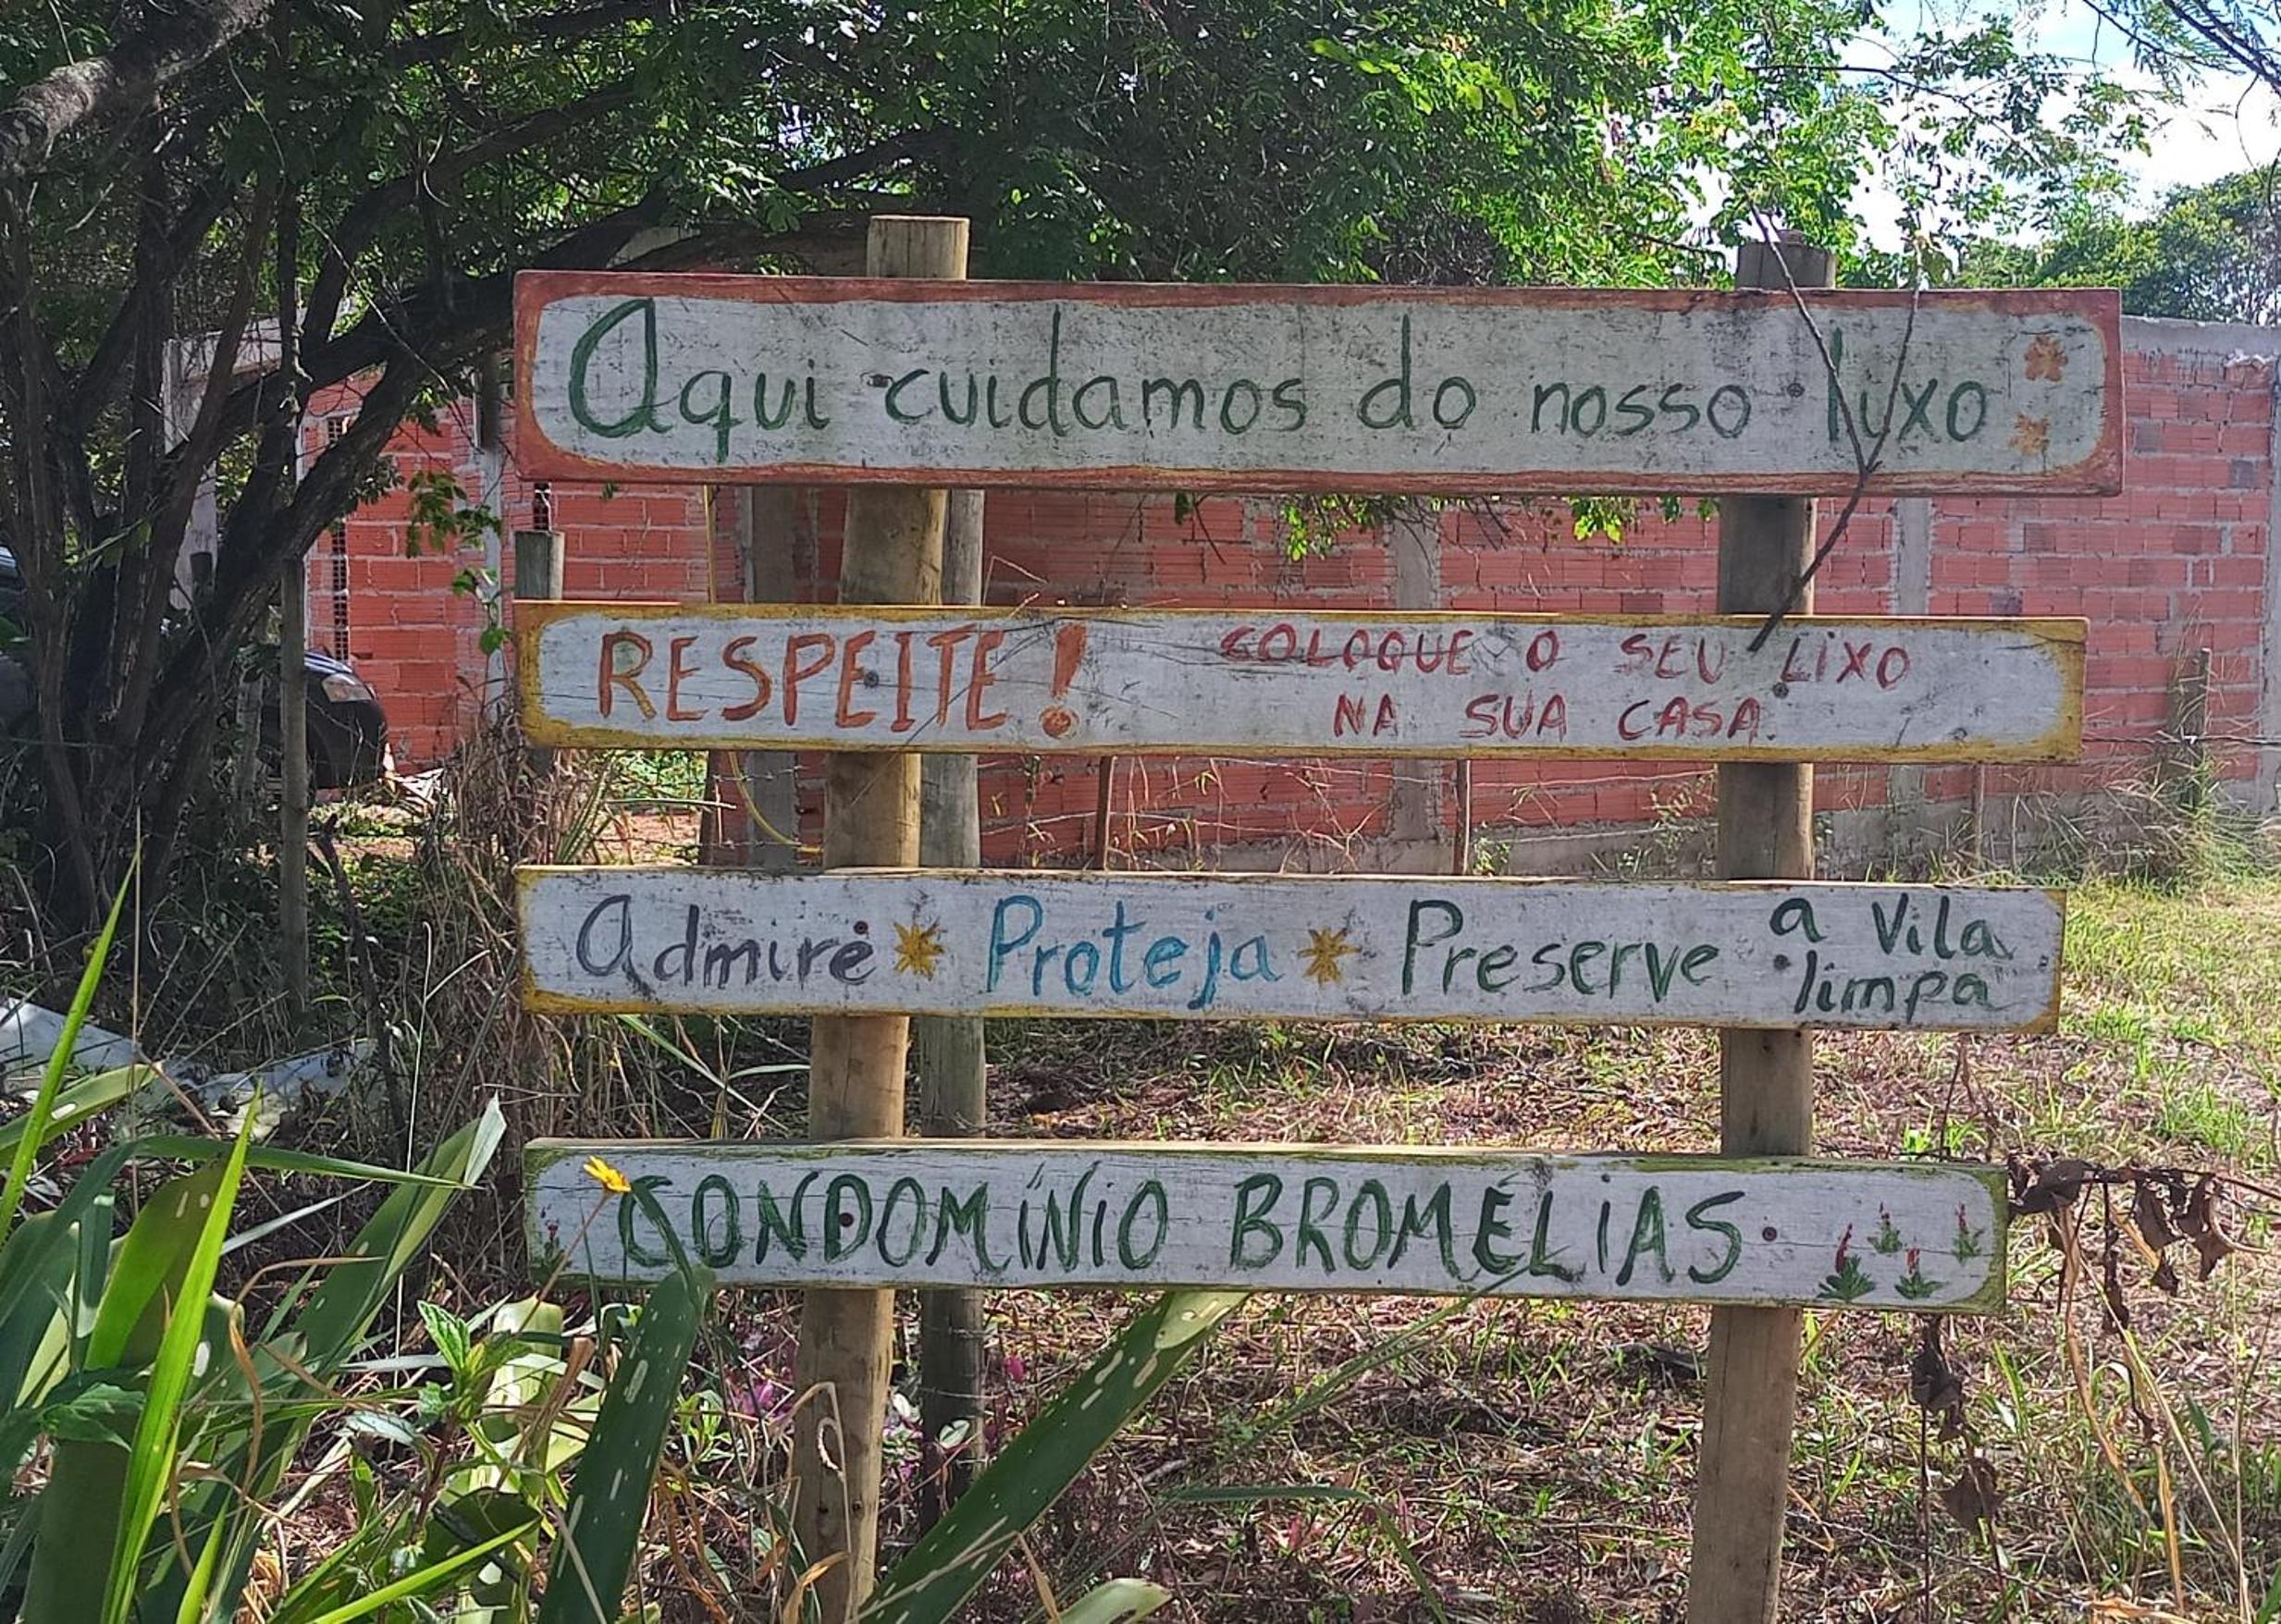 Aqui cuidamos do nosso lixo
RESPEITE! COLOQUE O SEU LIXO
NA SUA CASA.
Admire Proteja Preserve a Vila
limpa
CONDOMÍNIO BROMÉLIAS